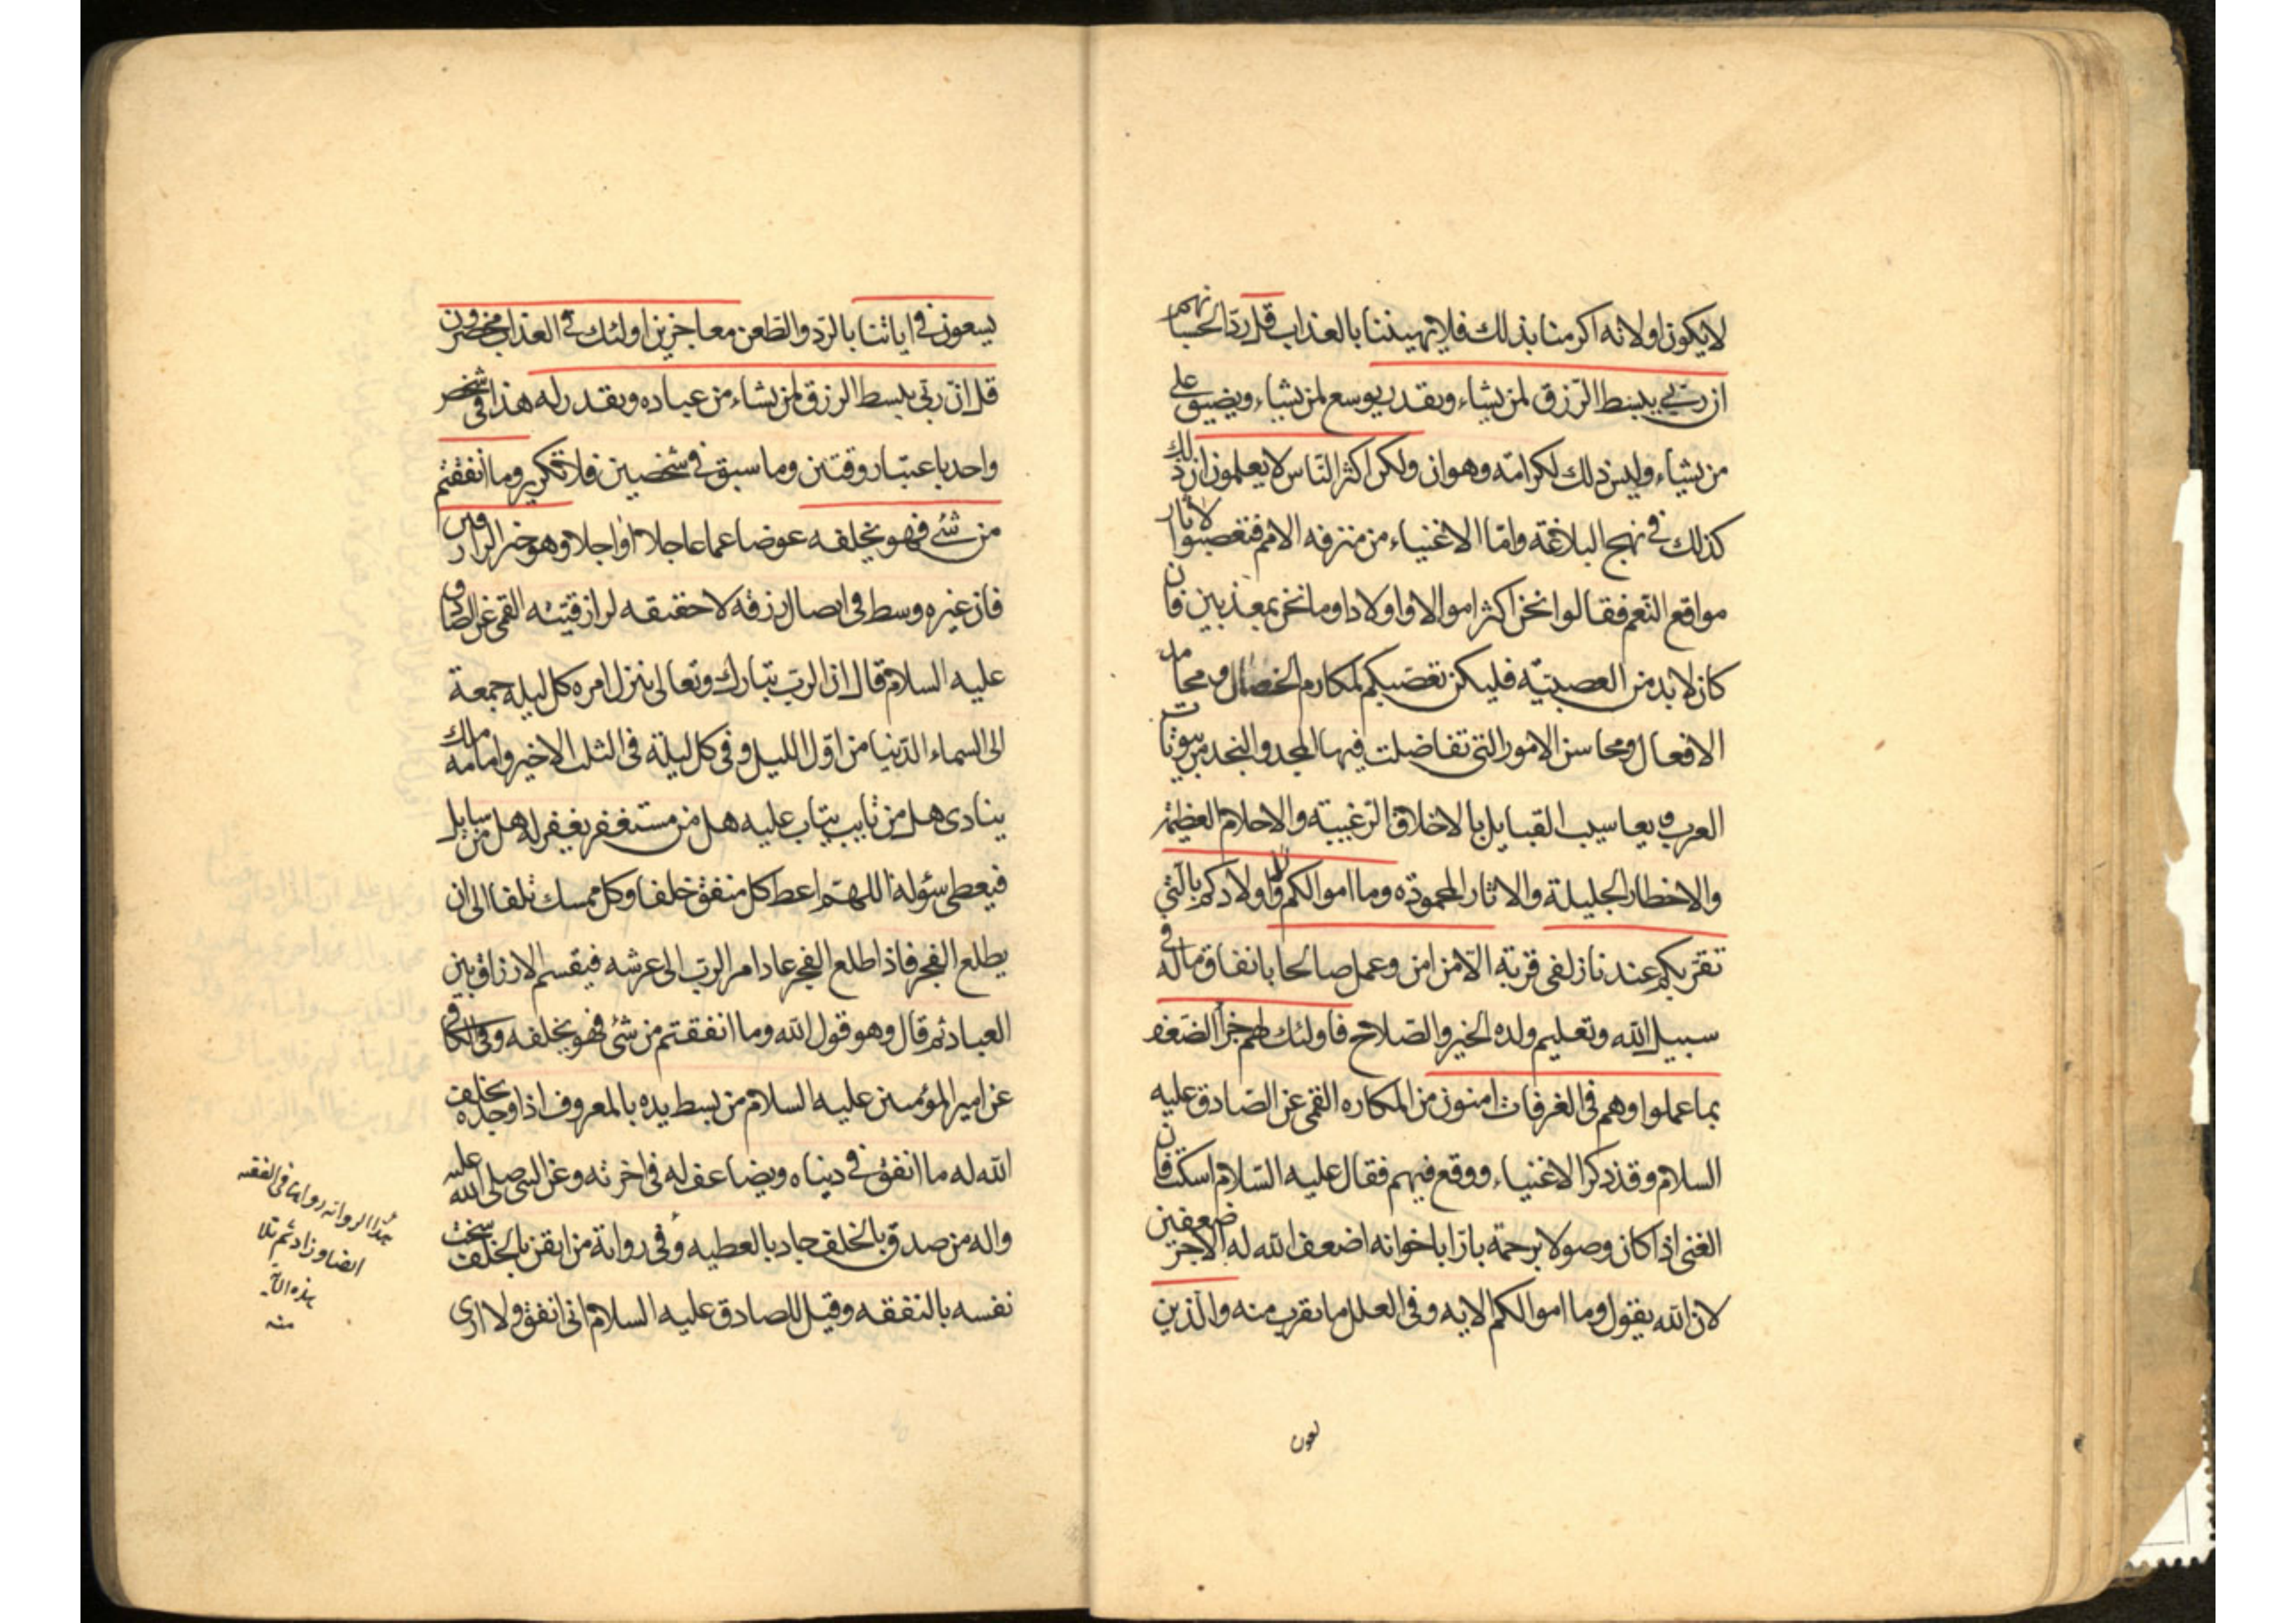 لا يكون او لانه اكرمنا بذلك فلا يهيننا بالعذاب قل ردّا لحسبانهم
ان ربي يبسط الرّزق لمن يشاء ويقدر يوسع لمن يشاء ويضيق على
من يشاء وليس ذلك لكرامة وهوان ولكن اكثر النّاس لا يعلمون ان ذلك
كذلك في نهج البلاغة وامّا الاغنياء من مترفه الامم فتعصبوا لاثار
مواقع النّعم فقالوا نحن اكثر اموالا واولادا وما نحن بمعذبين فان
كان لابد من العصبيّة فليكن تعصّبكم لمكارم الخصال ومحامد
الافعال ومحاسن الامور التي تفاضلت فيها المجد والنجد من بيوتات
العرب ويعاسيب القبايل بالاخلاق الرّغيبة والاحلام العظيمة
والاخطار الجليلة والاثار المحمودة وما اموالكم ولا اولادكم بالّتي
تقرّبكم عندنا زلفى قربة الّا من امن وعمل صالحا بانفاق ماله في
سبيل الله وتعليم ولده الخير والصّلاح فاولئك لهم جزاء الضعف
بما عملوا وهم في الغرفات امنون من المكاره القمي عن الصّادق عليه
السلام وقد ذكر الاغنياء ووقع فيهم فقال عليه السّلام اسكت فان
الغني اذا كان وصولا برحمة بارّا باخوانه اضعف الله له الاجر ضعفين
لان الله يقول وما اموالكم الايه وفي العلل ما يقرب منه والّذين
يسعون
يسعون في اياتنا بالرّد والطّعن معاجزين اولئك في العذاب محضرون
قل انّ ربّي يبسط الرزق لمن يشاء من عباده ويقدر له هذا في شخص
واحد باعتبار وقتين وما سبق في شخصين فلا تكرير وما انفقتم
من شئ فهو يخلفه عوضا عما عاجلا او اجلا وهو خير الرازقين
فان غيره وسط في ايصال رزقه لا حقيقه لرازقيته القمي عن الصادق
عليه السلام قال ان الربّ تبارك وتعالى ينزل امره كل ليله جمعة
الى السماء الدّنيا من اوّل الليل وفي كل ليلة في الثلث الاخير وامامه ملك
ينادي هل من تايب يتاب عليه هل من مستغفر يغفر له هل من سايل
فيعطى سؤله اللهمّ اعط كل منفق خلفا وكل ممسك تلفا الى ان
يطلع الفجر فاذا طلع الفجر عاد امر الربّ الى عرشه فيقسم الارزاق بين
العباد ثم قال وهو قول الله وما انفقتم من شئ فهو يخلفه وفي الكافي
عن امير المؤمنين عليه السلام من بسط يده بالمعروف اذا وجده يخلف
الله له ما انفق في دنياه ويضاعف له في اخرته وعن النبي صلى الله عليه
واله من صدق بالخلف جاد بالعطيه وفي رواية من ايقن بالخلف سخت
نفسه بالنفقه وقيل للصادق عليه السلام اني انفق ولا ارى
هذا الرواية رواها في الفقيه
ايضا وزاد ثم تلا
هذه الاية
منه